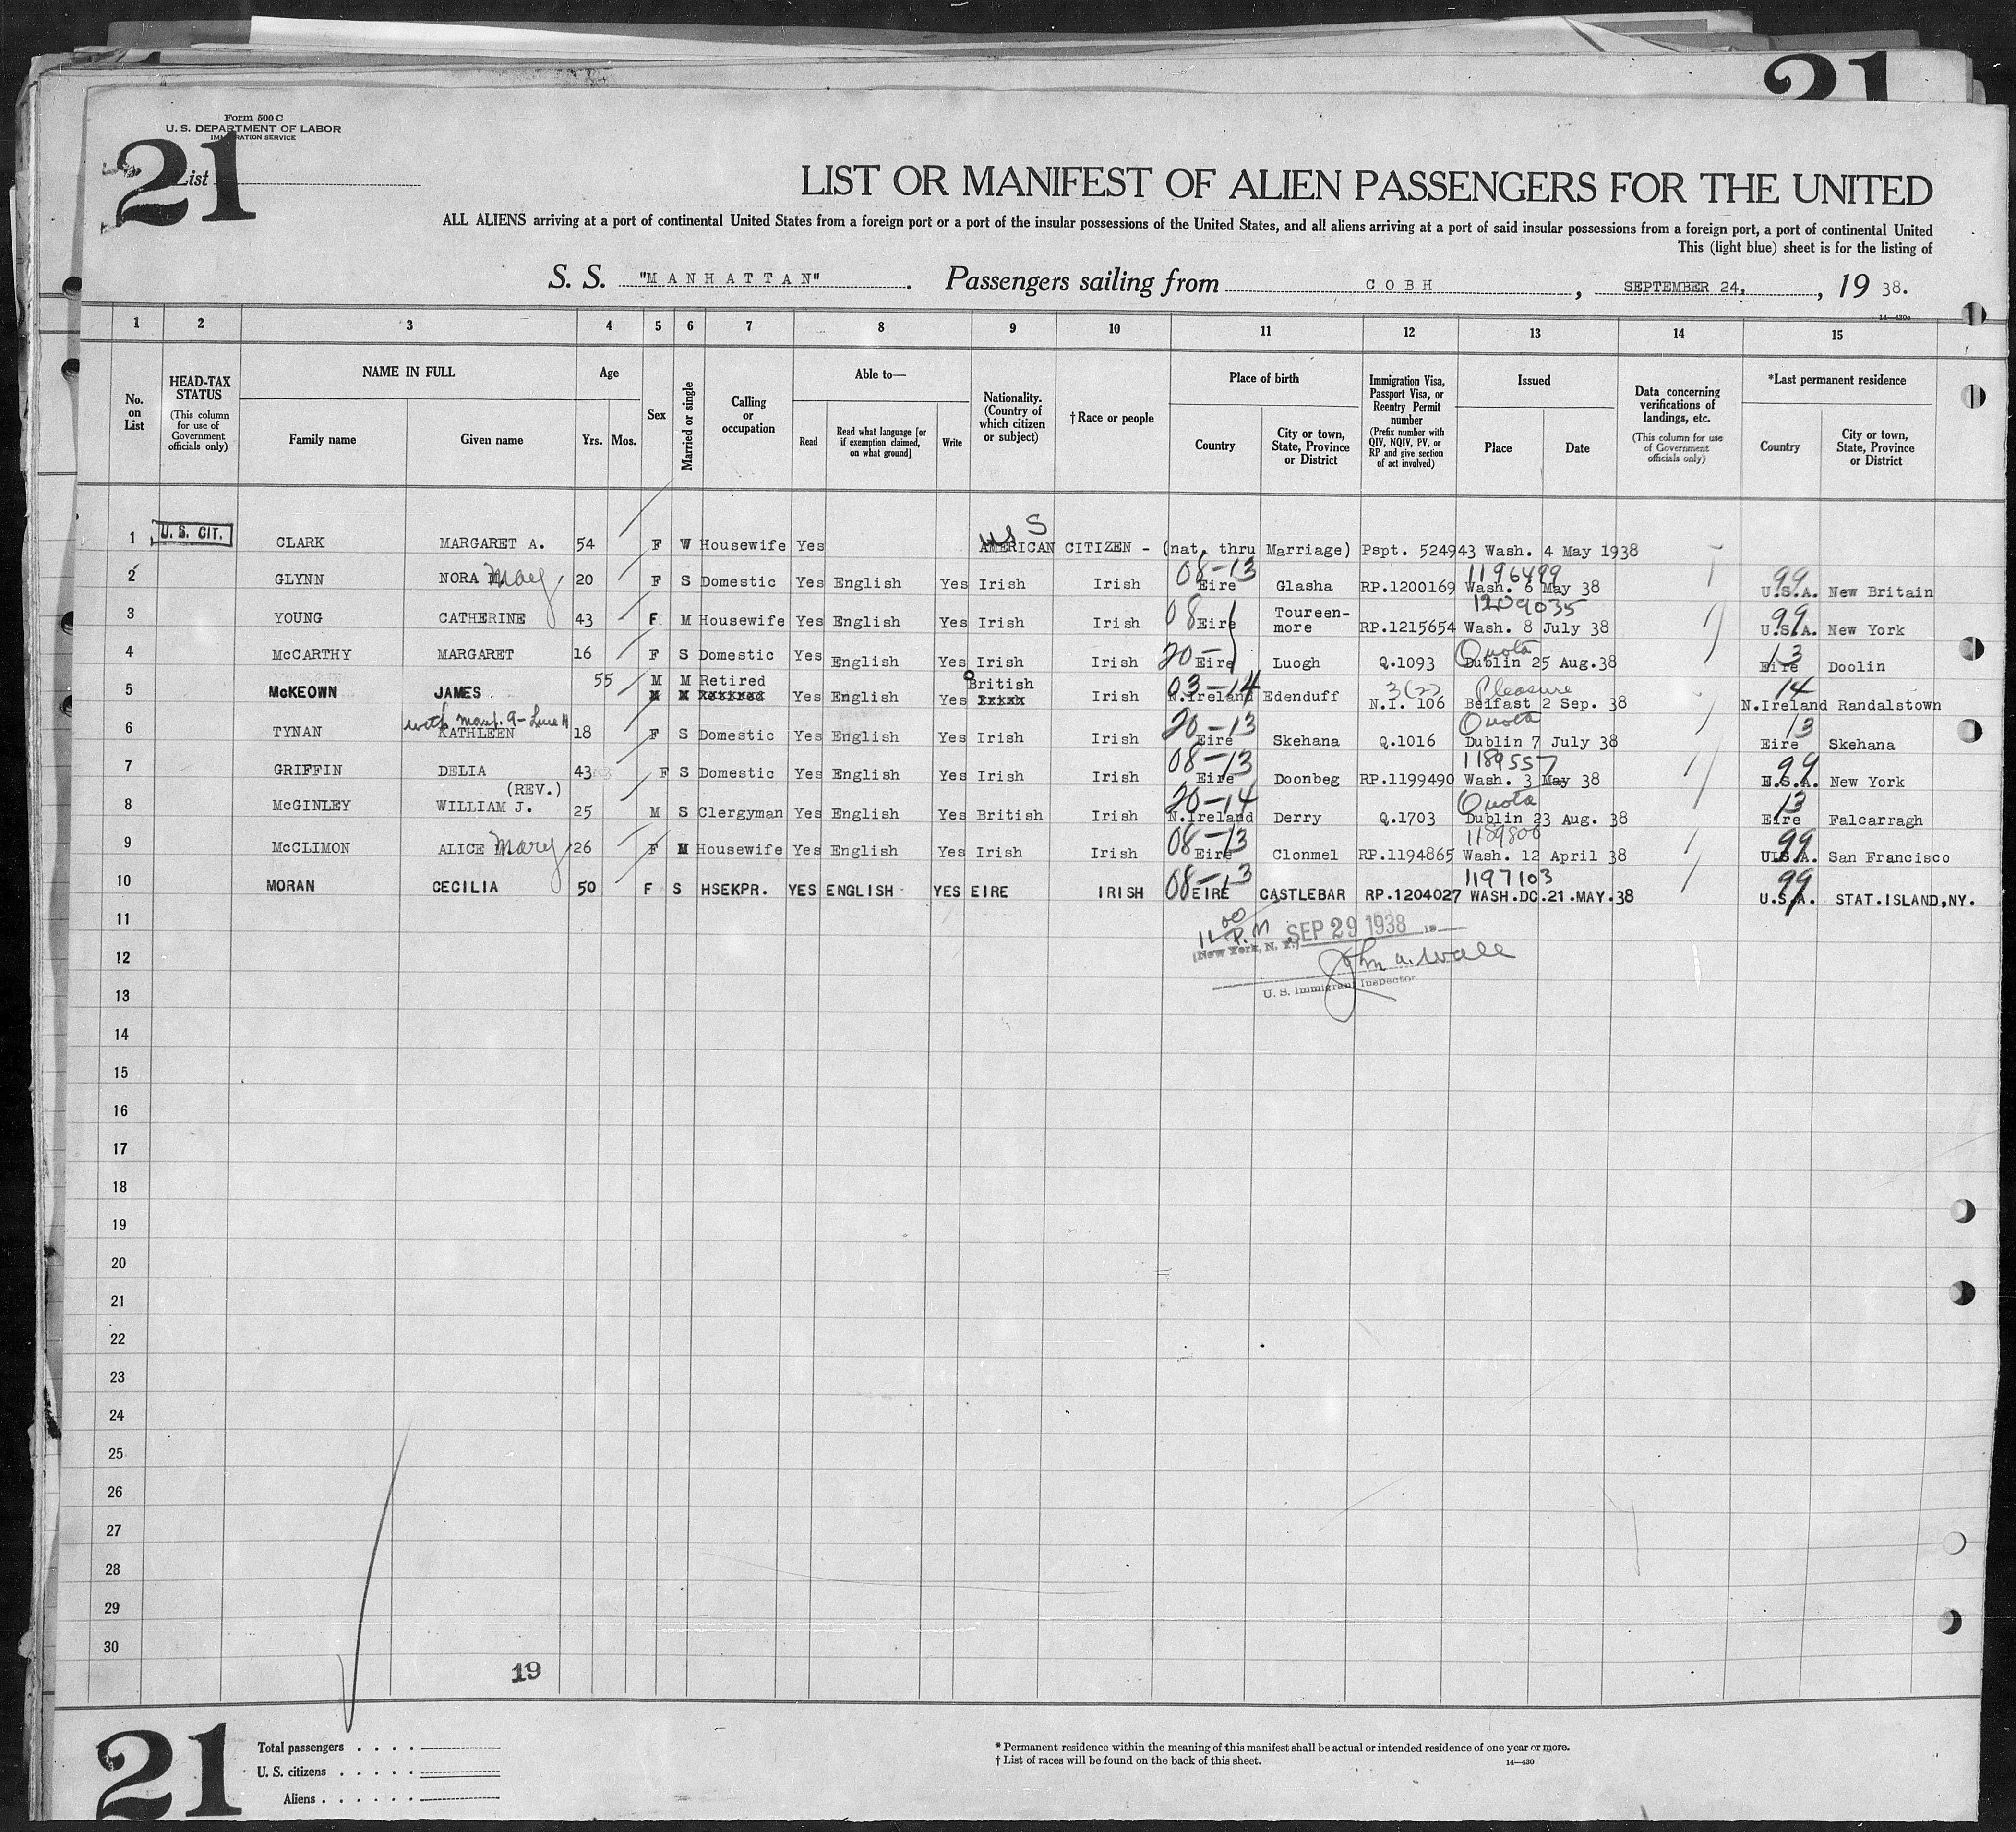 21
Form 500 C
U. S. DEPARTMENT OF LABOR
IMMIGRATION SERVICE
21
List
LIST OR MANIFEST OF ALIEN PASSENGERS FOR THE UNITED
ALL ALIENS arriving at a port of continental United States from a foreign port or a port of the insular possessions of the United States, and all aliens arriving at a port of said insular possessions from a foreign port, a port of continental United
This (light blue) sheet is for the listing of
S. S. "MANHATTAN" . Passengers sailing from COBH , SEPTEMBER 24, , 19 38.
14—430a
1 2 3 4 5 6 7 8 9 10 11 12 13 14 15
No. on List
HEAD-TAX STATUS
(This column for use of Government officials only)
NAME IN FULL
Family name Given name
Age
Yrs. Mos.
Sex
Married or single
Calling or occupation
Able to—
Read Read what language [or if exemption claimed, on what ground] Write
Nationality. (Country of which citizen or subject)
†Race or people
Place of birth
Country City or town, State, Province or District
Immigration Visa, Passport Visa, or Reentry Permit number
(Prefix number with QIV, NQIV, PV, or RP and give section of act involved)
Issued
Place Date
Data concerning verifications of landings, etc.
(This column for use of Government officials only)
*Last permanent residence
Country City or town, State, Province or District
US
1 U. S. CIT. CLARK MARGARET A. 54 F W Housewife Yes AMERICAN CITIZEN - (nat. thru Marriage) Pspt. 524943 Wash. 4 May 1938
08-13 1196499 99
2 GLYNN NORA M. May 20 F S Domestic Yes English Yes Irish Irish Eire Glasha RP.1200169 Wash. 6 May 38 U.S.A. New Britain
08 1209035 99
3 YOUNG CATHERINE 43 F M Housewife Yes English Yes Irish Irish Eire Toureen-more RP.1215654 Wash. 8 July 38 U.S.A. New York
20- Quota 13
4 McCARTHY MARGARET 16 F S Domestic Yes English Yes Irish Irish Eire Luogh Q.1093 Dublin 25 Aug.38 Eire Doolin
03-14 3(2) Pleasure 14
5 McKEOWN JAMES 55 M M Retired Yes English Yes British Irish N.Ireland Edenduff N.I. 106 Belfast 2 Sep. 38 N.Ireland Randalstown
20-13 Quota 13
6 TYNAN KATHLEEN 18 F S Domestic Yes English Yes Irish Irish Eire Skehana Q.1016 Dublin 7 July 38 Eire Skehana
08-13 1189557 99
7 GRIFFIN DELIA 43 F S Domestic Yes English Yes Irish Irish Eire Doonbeg RP.1199490 Wash. 3 May 38 U.S.A. New York
(REV.) 20-14 Quota 13
8 McGINLEY WILLIAM J. 25 M S Clergyman Yes English Yes British Irish N.Ireland Derry Q.1703 Dublin 23 Aug. 38 Eire Falcarragh
08-13 1189800 99
9 McCLIMON ALICE Mary 26 F M Housewife Yes English Yes Irish Irish Eire Clonmel RP.1194865 Wash. 12 April 38 U.S.A. San Francisco
08-13 1197103 99
10 MORAN CECILIA 50 F S HSEKPR. YES ENGLISH YES EIRE IRISH EIRE CASTLEBAR RP.1204027 WASH.DC.21.MAY.38 U.S.A. STAT.ISLAND,NY.
11
11 00 P.M SEP 29 1938 19
(New York, N. Y.)
12
John A. Wall
U. S. Immigrant Inspector
13
14
15
16
17
18
19
20
21
22
23
24
25
26
27
28
29
30
19
21
Total passengers . . . .
U. S. citizens . . . . .
Aliens . . . . . .
* Permanent residence within the meaning of this manifest shall be actual or intended residence of one year or more.
† List of races will be found on the back of this sheet.
14—430